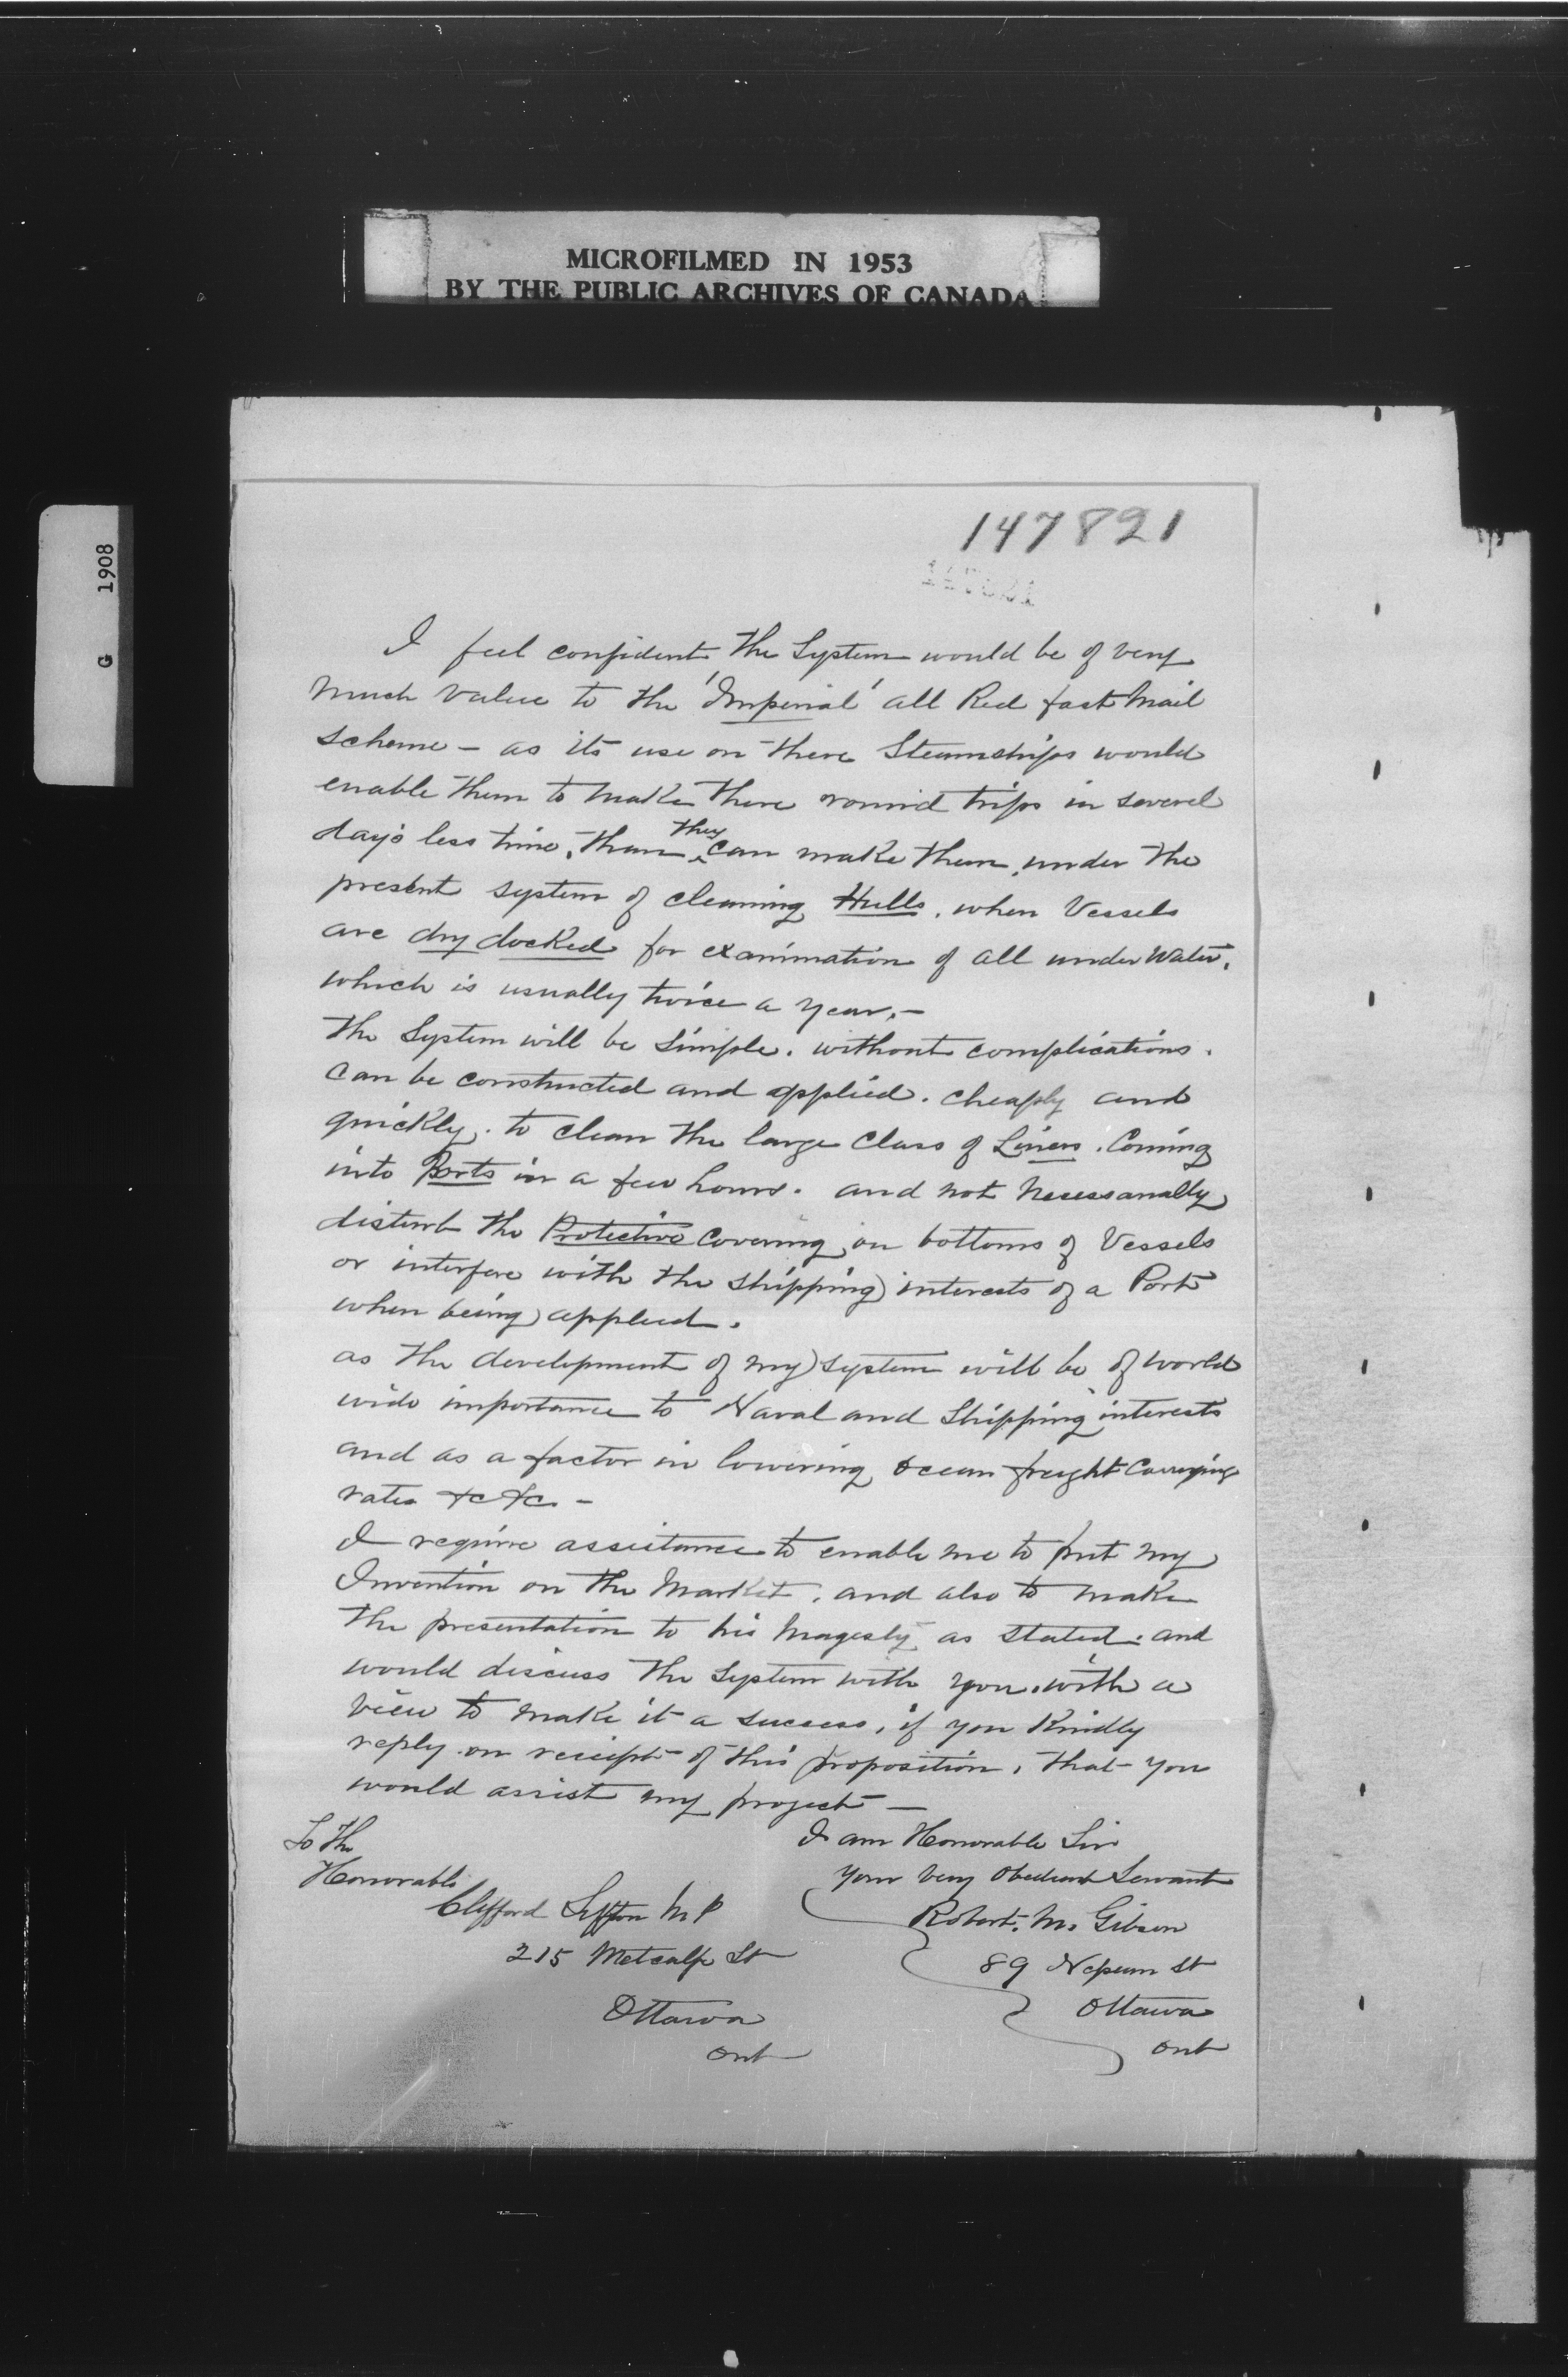 MICROFILMED IN 1953
BY THE PUBLIC ARCHIVES OF CANADA
G 1908
147821
I feel confident, the System would be of very
much value to the 'Imperial' all Red fast Mail
scheme – as its use on there Steamships would
enable them to make there round trips in several
day's less time, than they can make them, under the
present system of cleaning Hulls, when Vessels
are dry docked for examination of all under Water,
which is usually twice a year. –
The System will be simple. without complications.
Can be constructed and applied. cheaply and
quickly. to clean the large Class of Liners. Coming
into Ports in a few hours. and not necessarally
disturb the Protective Covering on bottoms of Vessels
or interfere with the shipping interests of a Port
when being applied.
as the development of my system will be of world
wide importance to Naval and Shipping interests
and as a factor in lowering ocean freight Carrying
rates &c &c. –
I require assistance to enable me to put my
Invention on the Market. and also to make
the presentation to his Magesty as stated. and
would discuss the System with you, with a
view to make it a success, if you Kindly
reply on receipt of this proposition, that you
would assist my project –
To The
Honorable
Clifford Sifton M P
215 Metcalfe St
Ottawa
Ont
I am Honorable Sir
your very Obedient Servant
Robert. M. Gibson
89 Nepean St
Ottawa
Ont